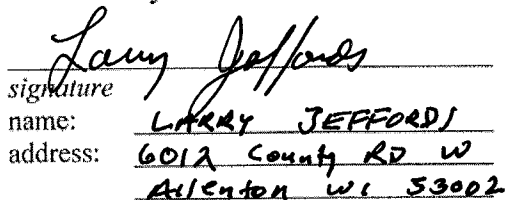 Larry Jeffords
signature
name: LARRY JEFFORDS
address: 6012 County RD W
Allenton WI 53002